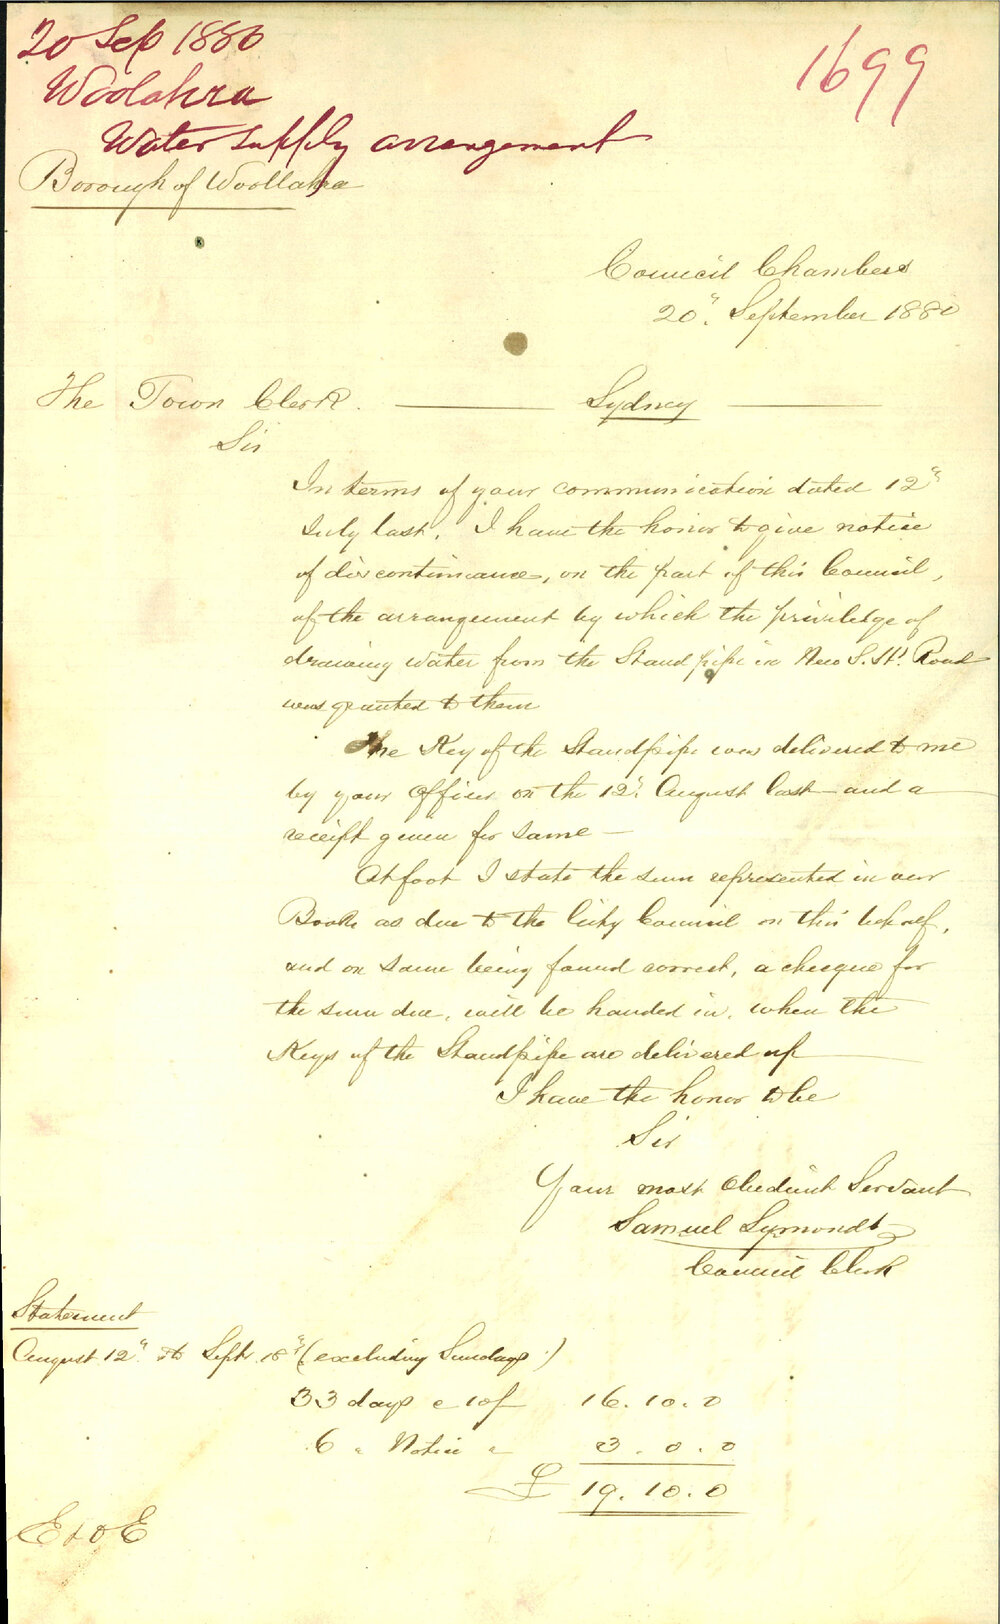 20 Sep 1880
1699
Woolahra
Water supply arrangement
Borough of Woollahra
Council Chambers
20" September 1880
The Town Clerk. Sydney
Sir
In terms of your communication dated 12"
July last, I have the honor to give notice
of discontinuance, on the part of this Council,
of the arrangement by which the privilege of
drawing water from the Stand pipe in New S. Hd. Road
was granted to them
The Key of the Standpipe was delivered to me
by your Officer on the 12" August last and a
receipt given for same —
At foot I state the sum represented in our
Books as due to the City Council on this behalf,
and on same being found correct, a cheque for
the sum due, will be handed in, when the
Keys of the Standpipe are delivered up
I have the honor to be
Sir
Your most Obedient Servant
Samuel Symonds
Council Clerk
Statement
August 12" to Sept. 18" (excluding Sundays)
33 days @ 10/ 16.10.0
6 " Notice " 3.0.0
£ 19.10.0
E & O E